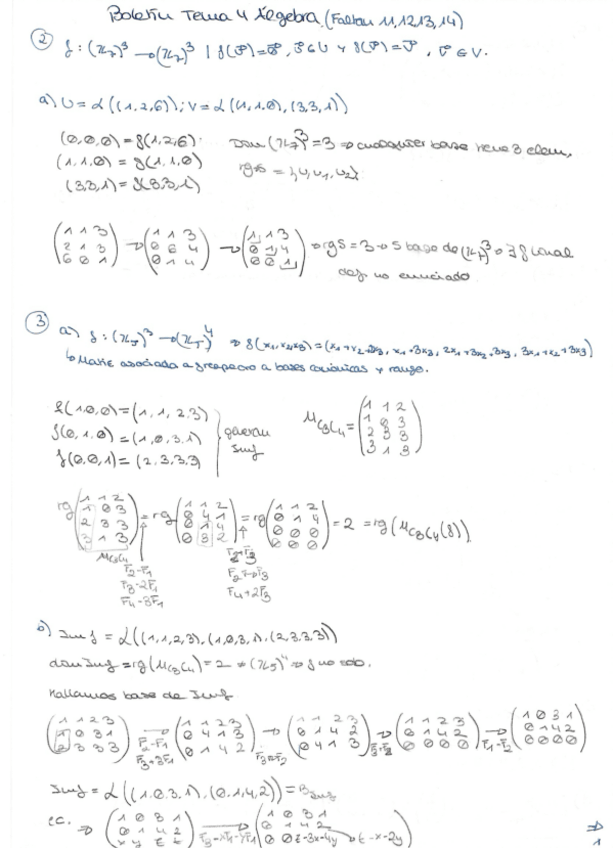 Boletín Tema 4 Álgebra (Faltan 11,12,13,14)
② f: (ℤ₇)³ → (ℤ₇)³ |
a) U = L((1,2,6)); V = L((1,1,0),(3,3,1))
(0,0,0) = f(1,2,6)
(1,1,0) = f(1,1,0)
(3,3,1) = f(3,3,1)
Dim (ℤ₇)³ = 3 ⇒ cualquier base tiene 3 elem.
1 1 3
2 1 3
6 0 1
→
1 1 3
0 6 4
0 1 4
→
1 1 3
0 1 4
0 0 1
→ rg S = 3 → S base de (ℤ₇)³ → ∃ f lineal
del no enunciado
③ a) f: (ℤ₅)³ → (ℤ₅)⁴
↳ Matriz asociada a f respecto a bases canónicas y rango.
f(1,0,0) = (1,1,2,3)
f(0,1,0) = (1,0,3,1)
f(0,0,1) = (2,3,3,3)
generan
Im f
M C₃C₄ =
1 1 2
1 0 3
2 3 3
3 1 3
rg
1 1 2
1 0 3
2 3 3
3 1 3
= rg
1 1 2
0 4 1
0 1 4
0 3 2
= rg
1 1 2
0 1 4
0 0 0
0 0 0
= 2 = rg(M C₃C₄(f))
M C₃C₄
F₂-F₁
F₃-2F₁
F₄-3F₁
F₄+2F₃
b) Im f = L((1,1,2,3),(1,0,3,1),(2,3,3,3))
dim Im f = rg(M C₃C₄) = 2 ≠ (ℤ₅)⁴ ⇒ f no sob.
Hallamos base de Im f
1 1 2 3
1 0 3 1
2 3 3 3
F₂-F₁
F₃+3F₁
1 1 2 3
0 4 1 3
0 1 4 2
→
1 1 2 3
0 1 4 2
0 4 1 3
→
1 1 2 3
0 1 4 2
0 0 0 0
F₁-F₂
1 0 3 1
0 1 4 2
0 0 0 0
Im f = L((1,0,3,1),(0,1,4,2)) = B Im f
ec. ⇒
1 0 3 1
0 1 4 2
x y z t
→
1 0 3 1
0 1 4 2
0 0 z-3x-4y t-x-2y
⇒
1